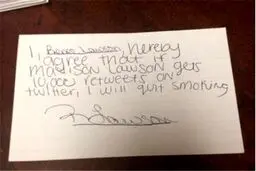 I, Lawson, hereby
agree that if
Madison Lawson gets
10,000 retweets on
twitter, I will quit smoking
Lawson